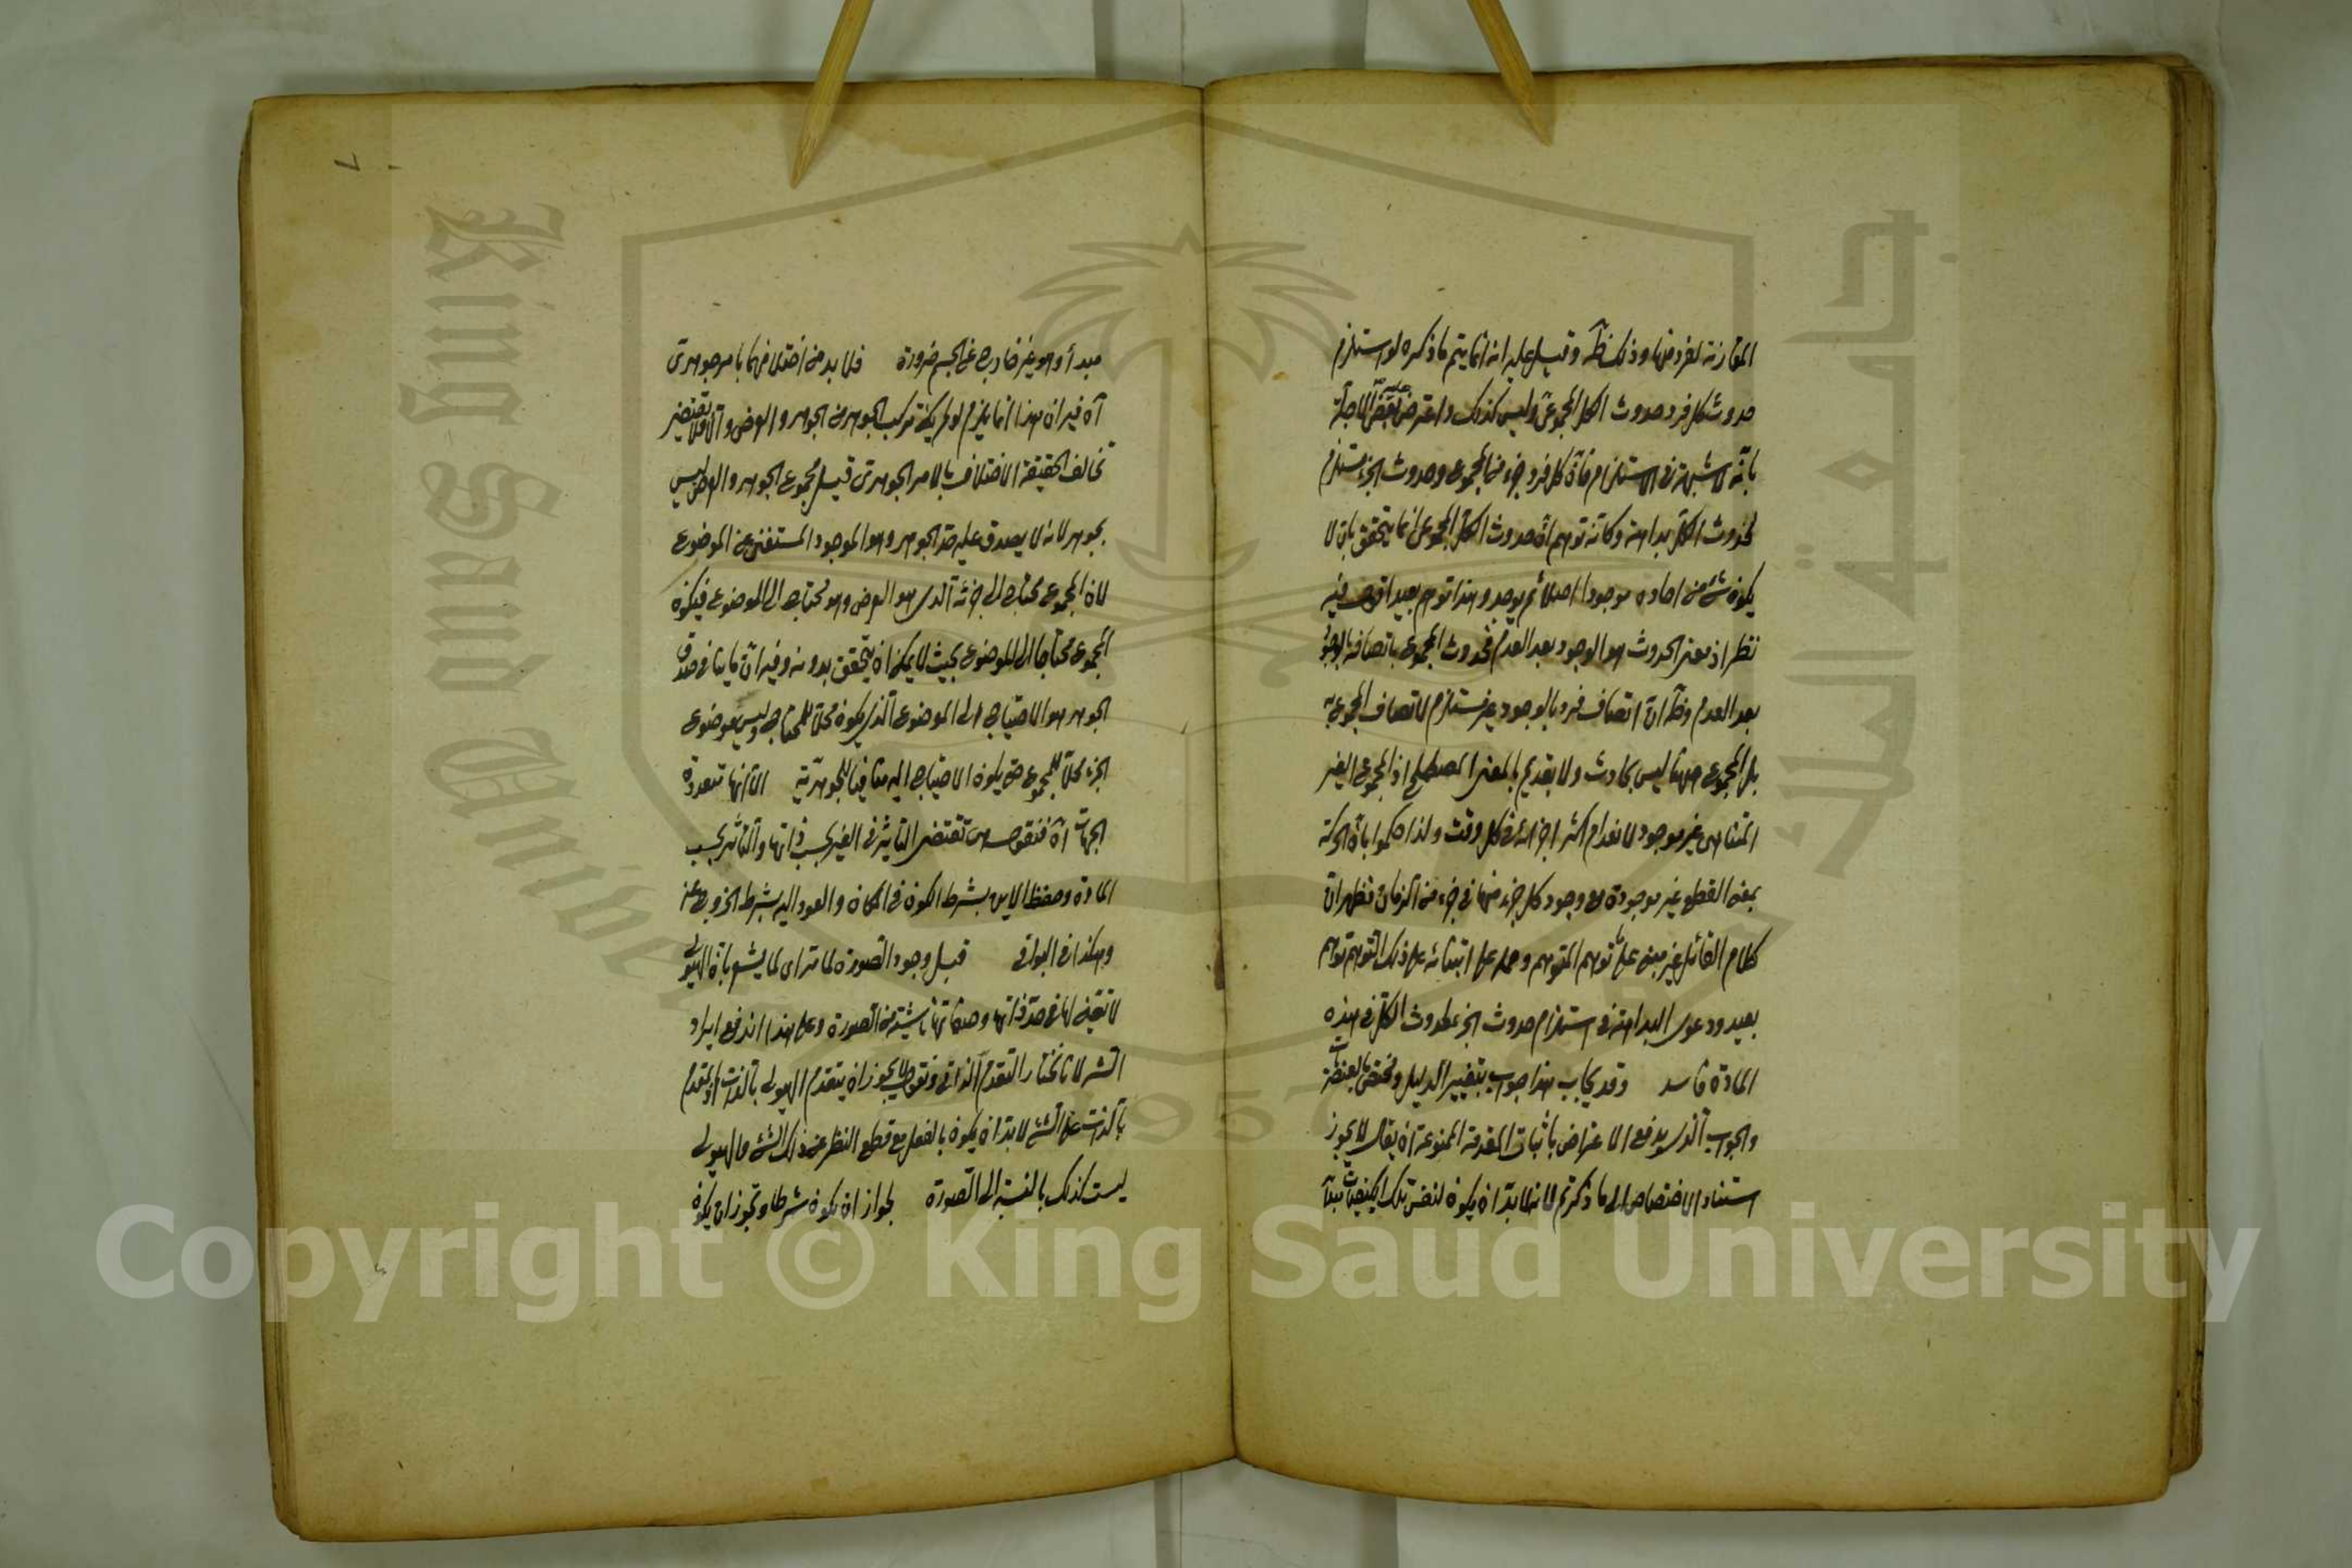 المقارنة لفرد منها وذلك ظ وقيل عليه انه انما يتم ما ذكره لو استلزم
حدوث كل فرد حدوث الكل المجموعى وليس كذلك واعترض عليه بعض الاجلة
بانه لا شبهة فى الاستلزام فان كل فرد جزء من المجموع وحدوث الجزء مستلزم
لحدوث الكل بداهة وكانه توهم ان حدوث الكل المجموعى انما يتحقق بان لا
يكون شئ من احاده موجودا اصلا ثم يوجد وهذا توهم بعيد اقول فيه
نظر اذ معنى الحدوث هو الوجود بعد العدم فحدوث المجموع باتصافه بالوجود
بعد العدم وظ ان اتصاف فرد بالوجود غير مستلزم لاتصاف المجموع به
بل المجموع ههنا ليس بحادث ولا بقديم بالمعنى المصطلح اذ المجموع الغير
المتناهى غير موجود لانعدام اكثر اجزائه فى كل وقت ولذا حكموا بان الحركة
بمعنى القطع غير موجودة مع وجود كل جزء منها فى جزء من الزمان فظهر ان
كلام القائل غير مبنى على توهم المتوهم وحمله على ابتنائه على ذلك التوهم توهم
بعيد ودعوى البداهة فى استلزام حدوث الجزء لحدوث الكل فى هذه
المادة فاسد وقد يجاب هذا جواب بتغيير الدليل ومختص بالعنصريات
والجواب الذى يدفع الاعتراض باثبات المقدمة الممنوعة ان يقال لا يجوز
استناد الاختصاص الى ما ذكرتم لانه لا بد ان يكون لنفس تلك الكيفيات مبدأ
مبدأ وهو غير خارج عن الجسم ضرورة فلا بد من اختلافهما بامر جوهرى
آه فيه ان هذا انما يلزم لو لم يمكن تركب الجوهر من الجوهر والعرض والا فلا يقتضى
تخالف الحقيقة الاختلاف بالامر الجوهرى قيل مجموع الجوهر والعرض ليس
بجوهر لانه لا يصدق عليه حد الجوهر وهو الموجود المستغنى عن الموضوع
لان المجموع محتاج الى جزئه الذى هو العرض وهو محتاج الى الموضوع فيكون
المجموع محتاجا الى الموضوع بحيث لا يمكن ان يتحقق بدونه وفيه ان ما ينافى صدق
الجوهر هو الاحتياج الى الموضوع الذى يكون محلا للمحتاج وليس موضوع
الجزء محلا للمجموع حتى يكون الاحتياج اليه منافيا للجوهرية الا انها متعددة
الجهات آه فنقول هى تقتضى التاثير فى الغير بحسب ذاتها والتاثر بحسب
المادة وحفظ الاين بشرط الكون فى المكان والعود اليه بشرط الخروج عنه
وهكذا فى البواقى قبل وجود الصورة لما تراى لما يشعر بان الهيولى
لا تعين لها فى حد ذاتها وصفاتها ناشية من الصورة وعلى هذا اندفع ايراد
الشر لانا نختار التقدم الذاتى ونقول لا يجوز ان يتقدم الهيولى بالذات اذ المتقدم
بالذات على الشئ لا بد ان يكون بالفعل مع قطع النظر عن ذلك الشئ والهيولى
ليست كذلك بالنسبة الى الصورة لجواز ان يكون شرطا وتجوز ان يكون